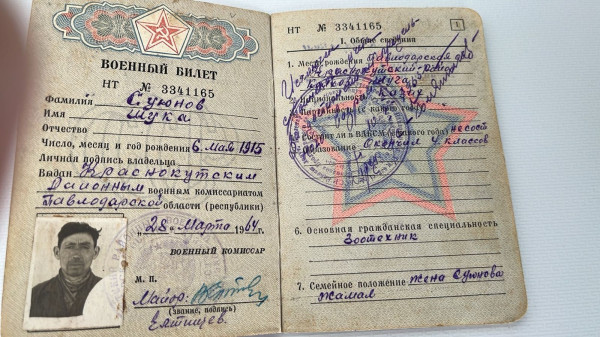 ВОЕННЫЙ БИЛЕТ
НТ № 3341165
Фамилия Суюнов
Имя Шука
Отчество
Число, месяц и год рождения 6 мая 1915
Личная подпись владельца
Выдан Краснокутским
Районным военным комиссариатом
Павлодарской области (республики)
28 Марта 1964 г.
ВОЕННЫЙ КОМИССАР
М. П.
Майор
(Звание, подпись)
НТ № 3341165
1
I. Общие сведения
1. Место рождения Павлодарская обл
Краснокутский район
Национальность Казах
Партийность (с какого года)
Состоит ли в ВЛКСМ (с какого года) несост
Образование Окончил 4 классов
6. Основная гражданская специальность
Зоотехник
7. Семейное положение жена Суюнова
Жамал